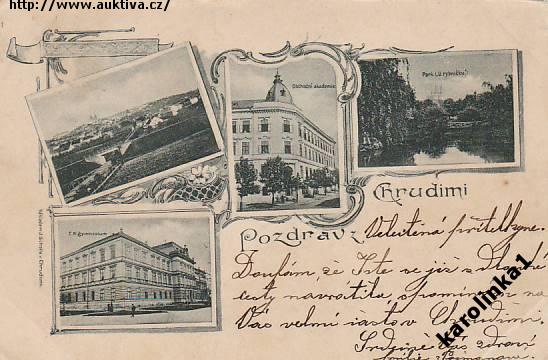 http://www.auktiva.cz/
Obchodní akademie.
Park (U rybníčku)
Chrudimi
C. K. Gymnasium
Pozdrav z
Velectěná přítelkyně.
Doufám, že Jste se již z dlouhé
cesty navrátila, vzpomínám na
Vás velmi často v Chrudimi.
Srdečně Vás zdraví
karolinka1